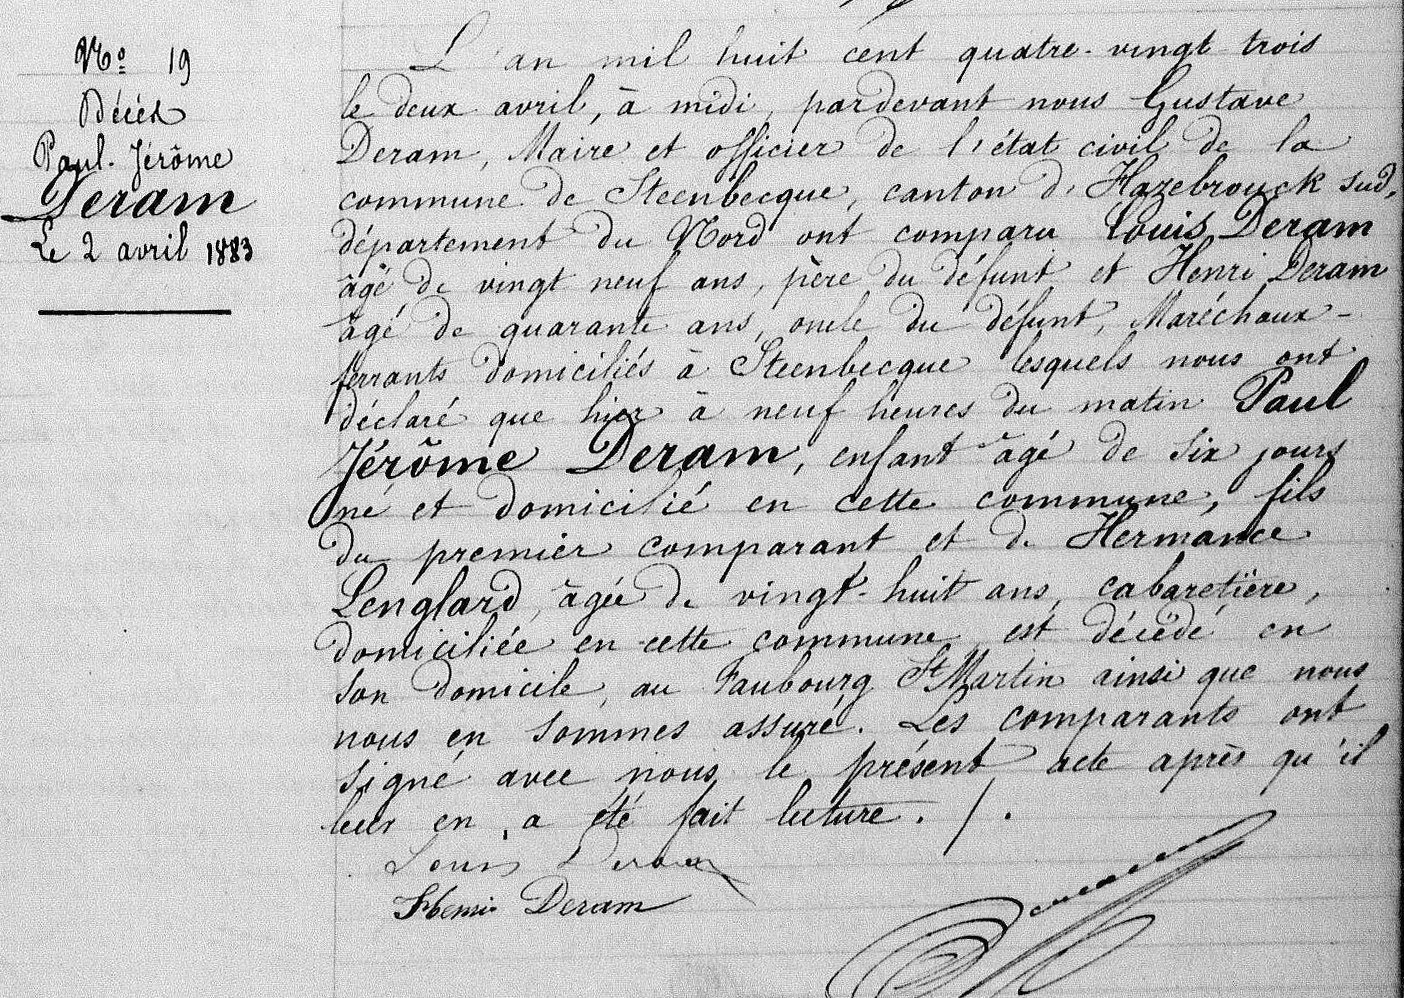 Nº 19
Décès
Paul Jérôme
Deram
Le 2 avril 1883
L'an mil huit cent quatre-vingt trois
le deux avril, à midi, pardevant nous Gustave
Deram, Maire et officier de l'état civil de la
commune de Steenbecque, canton d'Hazebrouck sud,
département du Nord ont comparu Louis Deram
âgé de vingt neuf ans, père du défunt et Henri Deram
âgé de quarante ans, oncle du défunt, Maréchaux-
ferrants domiciliés à Steenbecque lesquels nous ont
déclaré que hier à neuf heures du matin Paul
Jérôme Deram, enfant âgé de six jours
né et domicilié en cette commune, fils
du premier comparant et de Hermance
Lenglard, âgée de vingt-huit ans, cabaretière,
domiciliée en cette commune, est décédé en
son domicile, au Faubourg St Martin ainsi que nous
nous en sommes assuré. Les comparants ont
signé avec nous le présent acte après qu'il
leur en a été fait lecture. /.
Louis Deram
Henri Deram
Deram